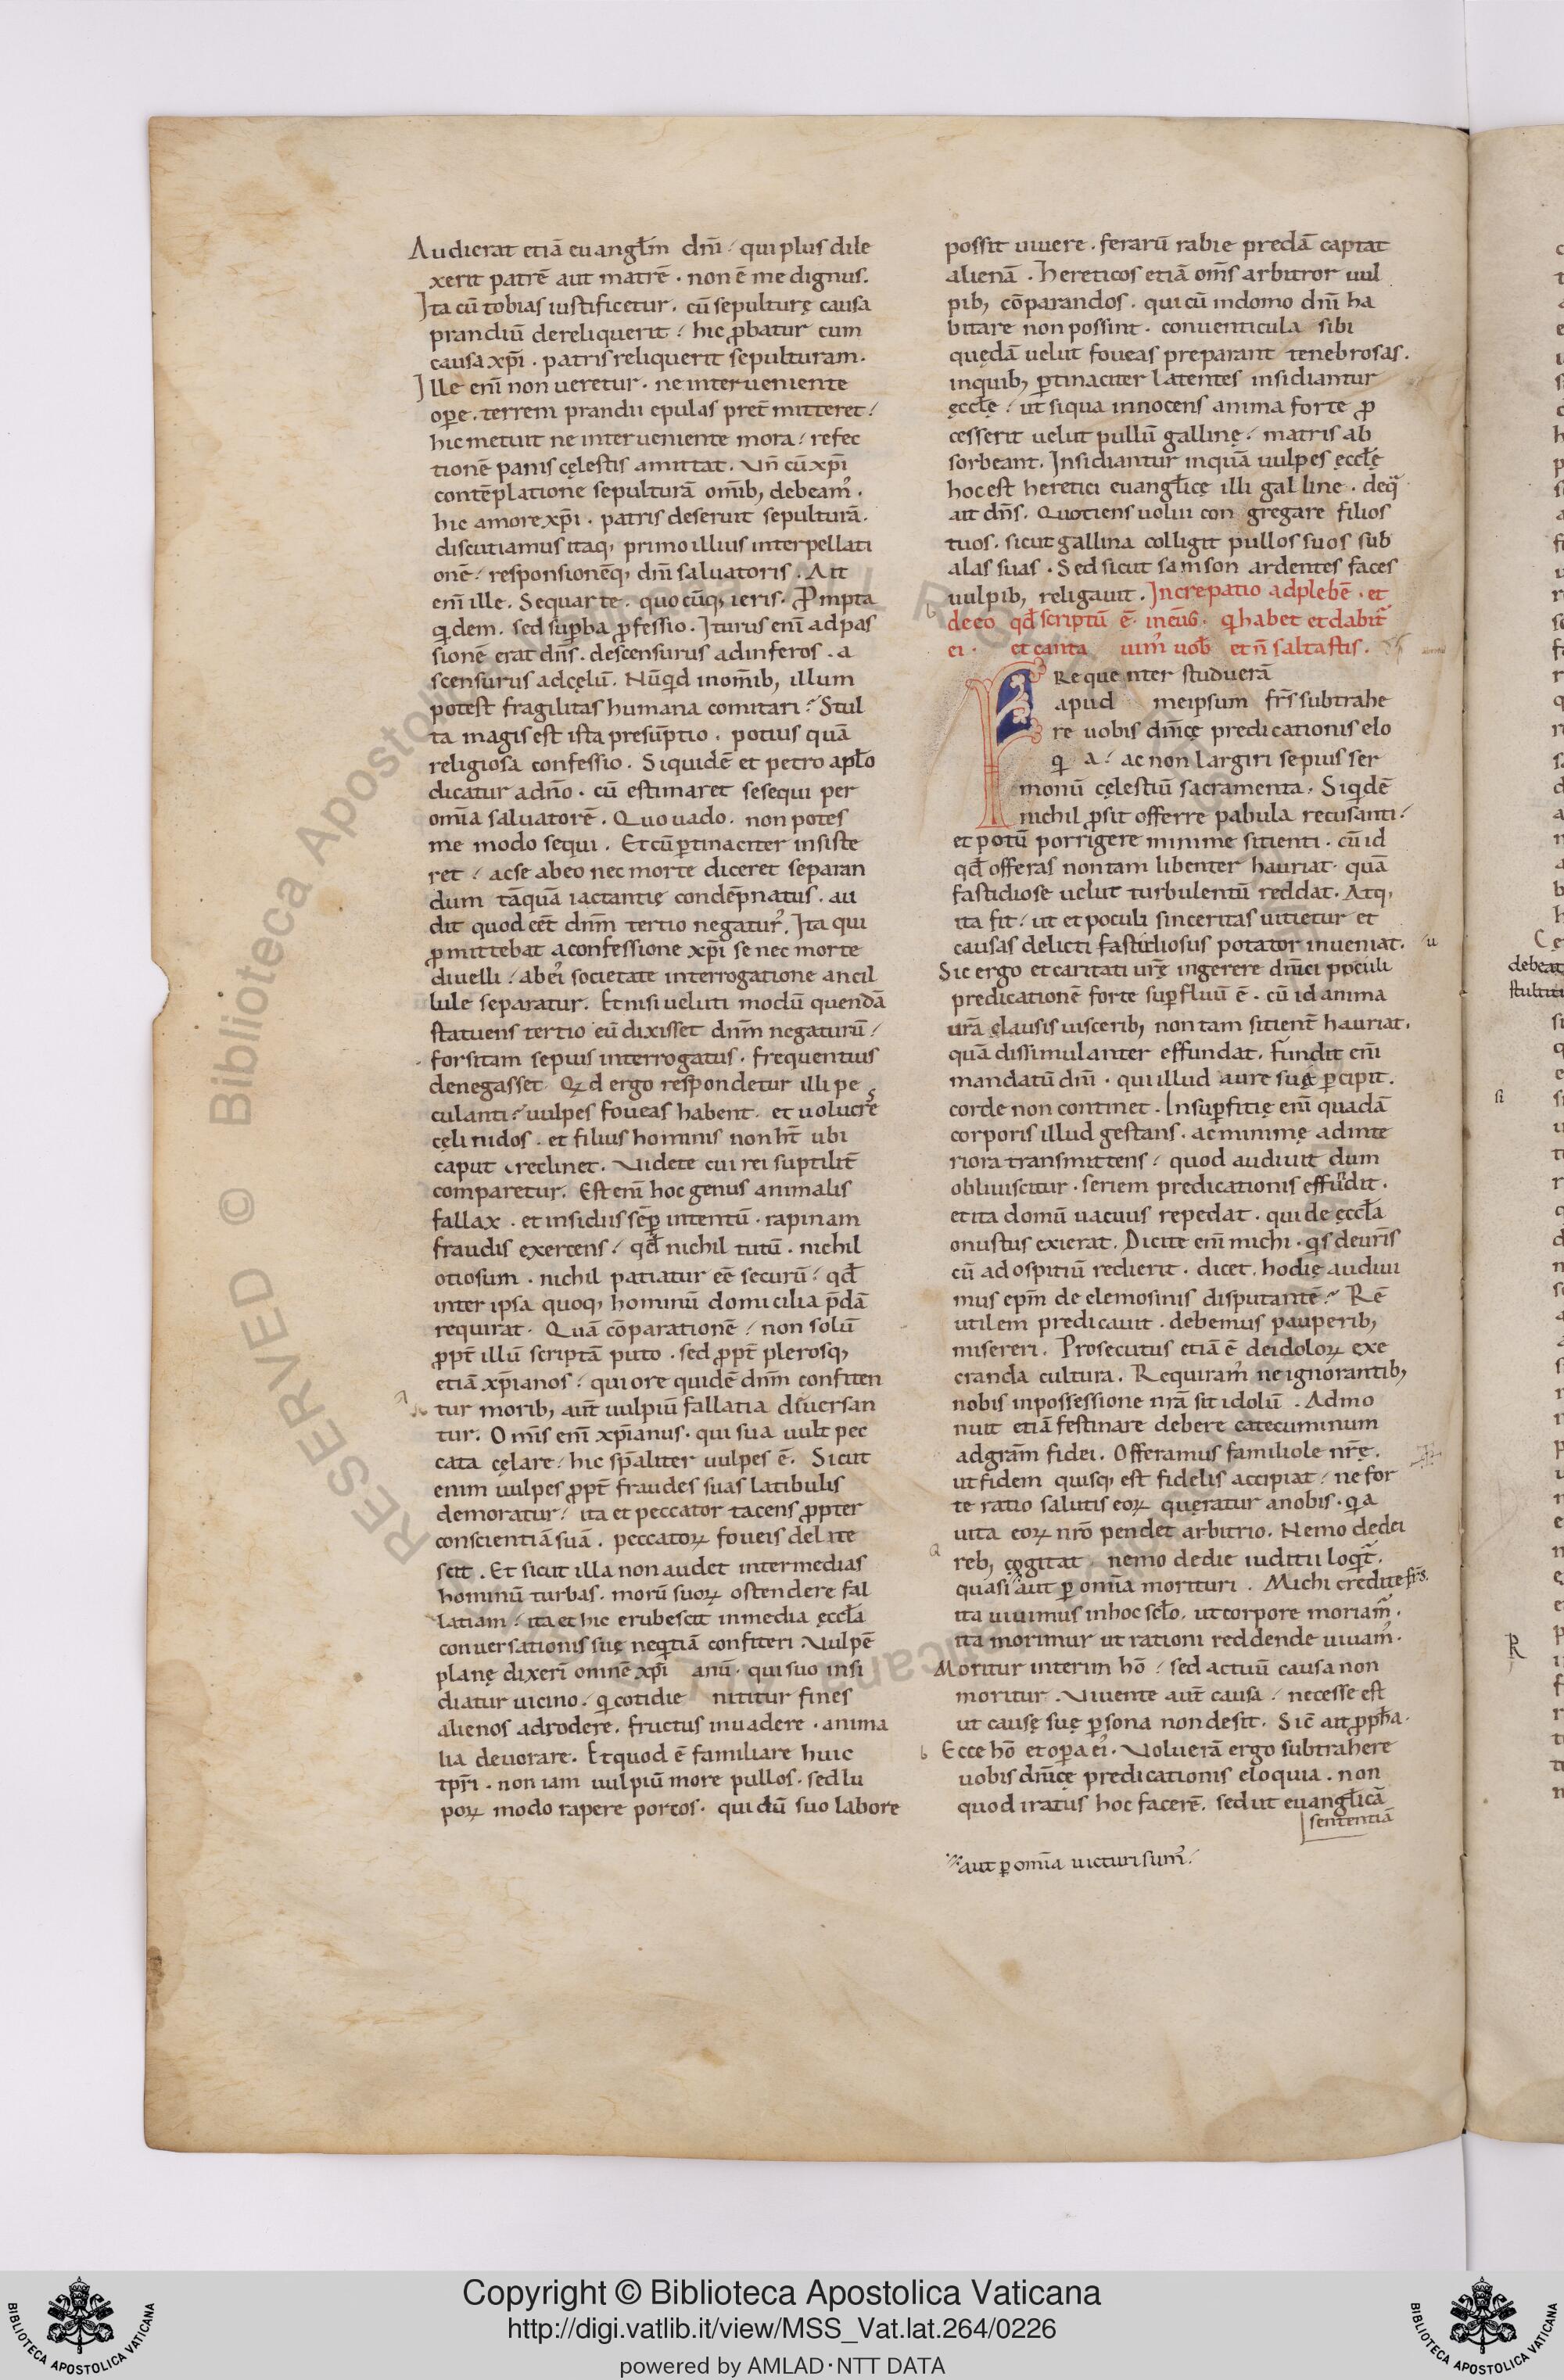 Audierat etiā euangłm dnī / qui plus dile
xerit patrē aut matrē . non ē me dignus.
Ita cū tobias iustificetur . cū sepulturę causa
prandiū dereliquerit / hic ꝓbatur cum
causa xp̄i . patris reliquerit sepulturam .
Ille enī non ueretur . ne interueniente
oꝑe . terreni prandii epulas pret̄ mitteret /
hic metuit ne interueniente mora / refec
tionē panis cęlestis amittat . Vn̄ cū xp̄i
contēplatione sepulturā om̄ib; debeam᾿ .
hic amore xp̄i . patris deseruit sepulturā .
discutiamus itaq; primo illius interpellati
onē / responsionēq; dnī saluatoris . Ait
enī ille . Sequar te . quocūq; ieris . Prōmpta
q̇dem . sed suꝑba ꝓfessio . Iturus enī ad pas
sionē erat dn̄s . descensurus ad inferos . a
scensurus ad cęlū . Nūq̇d in om̄ib; illum
potest fragilitas humana comitari? Stul
ta magis est ista presūptio . potius quā
religiosa confessio . Siquidē et petro apło
dicatur a dn̄o . cū estimaret se sequi per
om̄ia saluatorē . Quo uado . non potes
me modo sequi . Et cū ꝑtinaciter insiste
ret / ac se ab eo nec morte diceret separan
dum tāquā iactantię condēpnatus . au
dit quod eēt dnm̄ tertio negatur᾿ . Ita qui
ꝓmittebat a confessione xp̄i se nec morte
diuelli / ab ei᾿ societate interrogatione ancil
lule separatur . Et nisi ueluti modū quendā
statuens tertio eū dixisset dnm̄ negaturū /
forsitam sepius interrogatus . frequentius
denegasset . Qꝛd ergo respondetur illi pe
culanti? uulpes foueas habent . et uolucrę̄
cęli nidos . et filius hominis non ht̄ ubi
caput reclinet . Videte cui rei suptilit̄
comparetur . Est enī hoc genus animalis
fallax . et insidiis sēꝑ intentū . rapinam
fraudis exercens / qđ nichil tutū . nichil
otiosum . nichil patiatur eē securū / qđ
inter ipsa quoq; hominū domicilia p̄dā
requirat . Quā cōparationē / non solū
ꝓpt̄ illū scriptā puto . sed ꝓpt̄ plerosq;
etiā xp̄ianos / qui ore quidē dnm̄ confiten
tur morib; aut̄ uulpiū fallatia diuersan
tur . Om̄is enī xp̄ianus . qui sua uult pec
cata cęlare / hic sp̄aliter uulpes ē . Sicut
enim uulpes ꝓpt̄ fraudes suas latibulis
demoratur / ita et peccator tacens ꝓpter
conscientiā suā . peccatoꝝ foueis delite
scit . Et sicut illa non audet inter medias
hominū turbas . morū suoꝝ ostendere fal
latiam / ita et hic erubescit in media ęccła
conuersationis suę neq̇tiā confiteri . Vulpē
planę dixerī omnē xp̄i anū . qui suo insi
diatur uicino . q̇ cotidie nititur fines
alienos adrodere . fructus inuadere . anima
lia deuorare . Et quod ē familiare huic
tpr̄i . non iam uulpiū more pullos . sed lu
poꝝ modo rapere porcos . qui dū suo labore
possit uiuere . ferarū rabie predā captat
alienā . hereticos etiā om̄s arbitror uul
pib; cōparandos . qui cū in domo dnī ha
bitare non possint . conuenticula sibi
quędā uelut foueas preparant tenebrosas .
in quib; ꝑtinaciter latentes insidiantur
ęccłę / ut siqua innocens anima forte ꝓ
cesserit uelut pullū gallinę / matris ab
sorbeant . Insidiantur inquā uulpes ęccłę
hoc est heretici euangłicę illi galline . de q̄
ait dn̄s . Quotiens uolui congregare filios
tuos . sicut gallina colligit pullos suos sub
alas suas . Sed sicut samson ardentes faces
uulpib; religauit . Increpatio ad plebē . et
de eo qđ scriptū ē . in eūg . q̇ habet et dabit᾿
ei . et canta uim᾿ uob̄ et n̄ saltastis .
FRequenter studuerā
apud meipsum fr̄s subtrahe
re uobis dn̄icę predicationis elo
q̇ a / ac non largiri sepius ser
monū cęlestiū sacramenta . Siq̇dē
nichil ꝓsit offerre pabula recusanti /
et potū porrigere minime sitienti . cū id
qđ offeras non tam libenter hauriat . quā
fastidiose uelut turbulentū reddat . Atq;
ita fit / ut et poculi sinceritas uitietur et
causas delicti fastidiosus potator inueniat .
Sic ergo et caritati ur̄ę ingerere dn̄ici poculi
predicationē forte suꝑfluū ē . cū id anima
ur̄a clausis uiscerib; non tam sitient̄ hauriat .
quā dissimulanter effundat . fundit enī
mandatū dnī . qui illud aure suę ꝑcipit .
corde non continet . In suꝑfitię enī quadā
corporis illud gestans . ac minimę ad inte
riora transmittens / quod audiuit dum
obliuiscitur . seriem predicationis effūdit .
et ita domū uacuus repedat . qui de ęccła
onustus exierat . Dicite enī michi . q̇s de ur̄is
cū ad ospitiū redierit . dicet . hodię audiui
mus epm̄ de elemosinis disputantē? Rē
utilem predicauit . debemus pauperib;
misereri . Prosecutus etiā ē de idoloꝝ exe
cranda cultura . Requiram᾿ ne ignorantib;
nobis in possessione nr̄a sit idolū . Admo
nuit etiā festinare debere catecuminum
ad gr̄am fidei . Offeramus familiole nr̄ę .
ut fidem quisq; est fidelis accipiat / ne for
te ratio salutis eoꝝ queratur a nobis . q̇a
uita eoꝝ nr̄o pendet arbitrio . Nemo de dei
reb; cogitat nemo de die iuditii loq̇t᾿ .
quasi aut ꝑ om̄ia morituri . Michi credite fr̄s .
ita uiuimus in hoc scło . ut corpore moriam᾿ .
ita morimur ut rationi reddende uiuam᾿ .
Moritur interim hō / sed actuū causa non
moritur . Viuente aut̄ causa / necesse est
ut causę suę ꝑsona non desit . Sic̄ ait ꝓph̄a .
Ecce hō et oꝑa ei᾿ . Volueră ergo subtrahere
uobis dn̄icę predicationis eloquia . non
quod iratus hoc facerē . sed ut euangłicā
sententiā
aut ꝑ om̄ia uicturi sum᾿ /
Copyright © Biblioteca Apostolica Vaticana
http://digi.vatlib.it/view/MSS_Vat.lat.264/0226
powered by AMLAD·NTT DATA
BIBLIOTECA APOSTOLICA VATICANA
BIBLIOTECA APOSTOLICA VATICANA